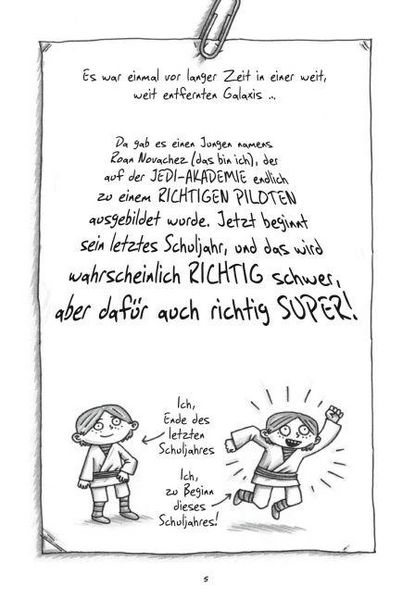 Es war einmal vor langer Zeit in einer weit,
weit entfernten Galaxis ...
Da gab es einen Jungen namens
Roan Novachez (das bin ich), der
auf der JEDI-AKADEMIE endlich
zu einem RICHTIGEN PILOTEN
ausgebildet wurde. Jetzt beginnt
sein letztes Schuljahr, und das wird
wahrscheinlich RICHTIG schwer,
aber dafür auch richtig SUPER!
Ich,
Ende des
letzten
Schuljahres
Ich,
zu Beginn
dieses
Schuljahres!
5